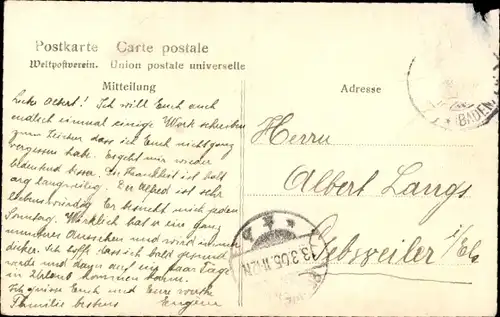 Postkarte Carte postale
Weltpostverein. Union postale universelle
Mitteilung
Adresse
Albert! Ich will Euch auch
endlich einmal einige Worte schreiben
zum Zeichen dass ich Euch nicht ganz
vergessen habe. Es geht mir wieder
bedeutend besser. Die Krankheit ist halt
arg langweilig. Der Alfred ist sehr
liebenswürdig Er besucht mich jeden
Sonntag. Wirklich hat er ein ganz
munteres Aussehen und wird immer
dicker. Ich hoffe dass ich bald gesund
werde und dann auf ein paar Tage
in Urlaub kommen kann.
Ich grüsse Euch und Eure werthe
Familie bestens Eugène
Herrn
Albert Lang
Gebweiler i/Els.
BADEN
3.3.06.11-12.N.